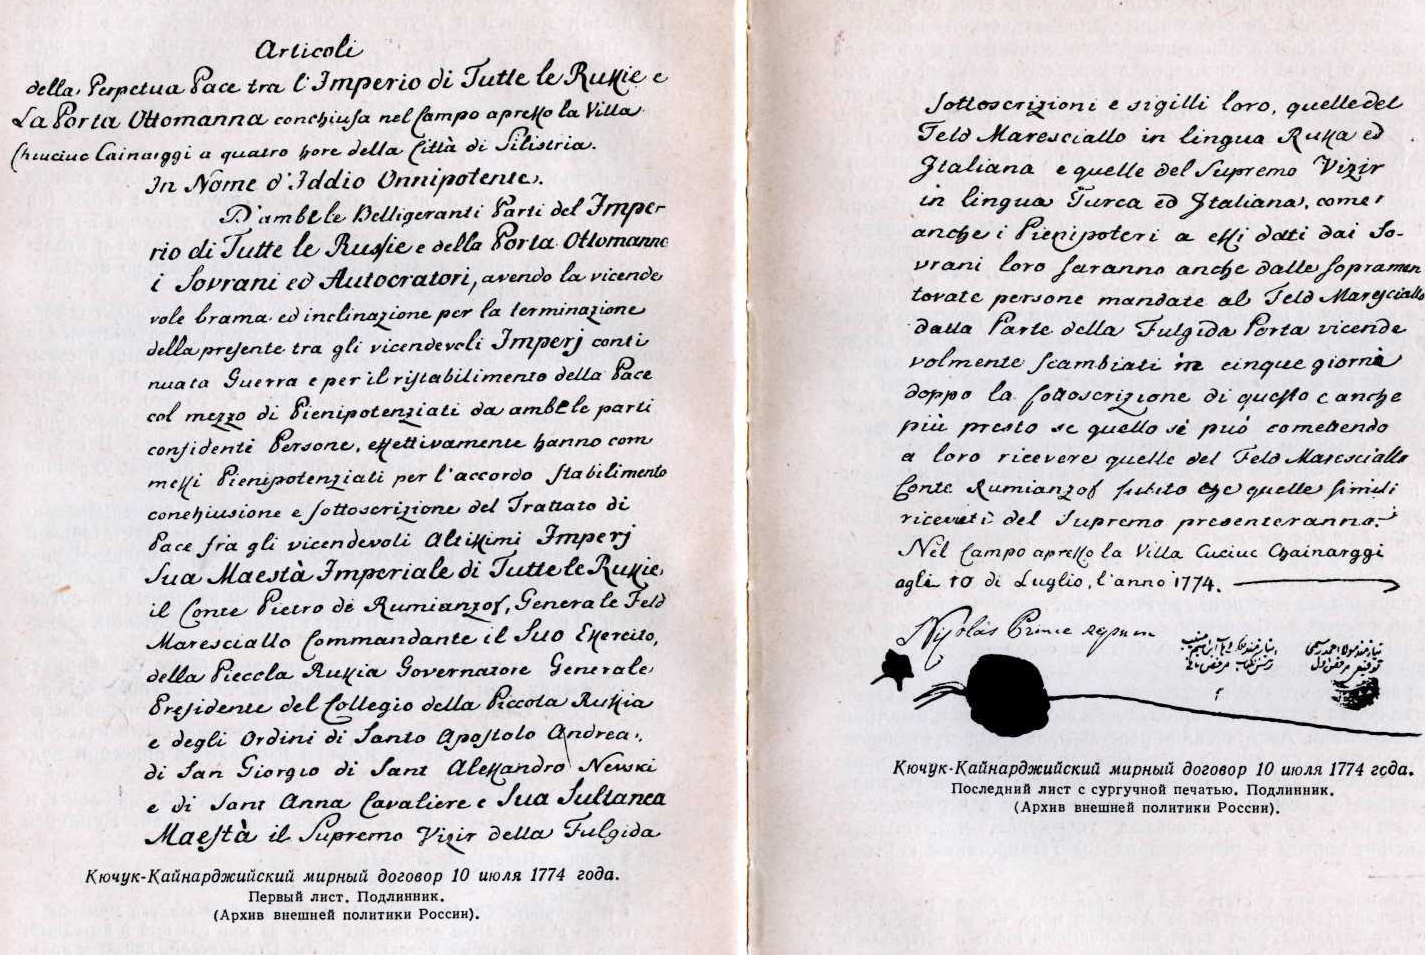 Articoli
della Perpetua Pace tra l'Imperio di Tutte le Russie e
La Porta Ottomanna conchiusa nel Campo apresso la Villa
Chiuciuc Cainarggi a quatro hore della Città di Silistria.
In Nome d'Iddio Onnipotente.
D'ambele Belligeranti Parti del Impe-
rio di Tutte le Russie e della Porta Ottomanna
i Sovrani ed Autocratori, avendo la vicende
vole brama ed inclinazione per la terminazione
della presente tra gli vicendevoli Imperj conti
nuata Guerra e per il ristabilimento della Pace
col mezzo di Plenipotenziati da ambele parti
confidenti Persone, effettivamente hanno com
messi Plenipotenziati per l'accordo stabilimento
conchiusione e sottoscrizione del Trattato di
Pace fra gli vicendevoli Altissimi Imperj
Sua Maestà Imperiale di Tutte le Russie
il Conte Pietro de Rumianzof, Generale Feld
Maresciallo Commandante il Suo Essercito,
della Piccola Russia Governatore Generale
Presidente del Collegio della Piccola Russia
e degli Ordini di Santo Apostolo Andrea,
di San Giorgio di Sant Alessandro Newski
e di Sant Anna Cavaliere e Sua Sultanea
Maestà il Supremo Vizir della Fulgida
Кючук-Кайнарджийский мирный договор 10 июля 1774 года.
Первый лист. Подлинник.
(Архив внешней политики России).
sottoscrizioni e sigilli loro, quelle del
Feld Maresciallo in lingua Russa ed
Italiana e quelle del Supremo Vizir
in lingua Turca ed Italiana, come
anche i Plenipoteri a essi dati dai So-
vrani loro saranno anche dalle sopramen
tovate persone mandate al Feld Maresciallo
dalla Parte della Fulgida Porta vicende
volmente scambiati in cinque giorni
doppo la sottoscrizione di questo e anche
più presto se quello si può cometendo
a loro ricevere quelle del Feld Maresciallo
Conte Rumianzof subito che quelle simili
ricevuti del Supremo presenteranno.
Nel Campo apresso la Villa Cuciuc Chainarggi
agli 10 di Luglio, l'anno 1774.
Nicolas Prince Repnin
Кючук-Кайнарджийский мирный договор 10 июля 1774 года.
Последний лист с сургучной печатью. Подлинник.
(Архив внешней политики России).